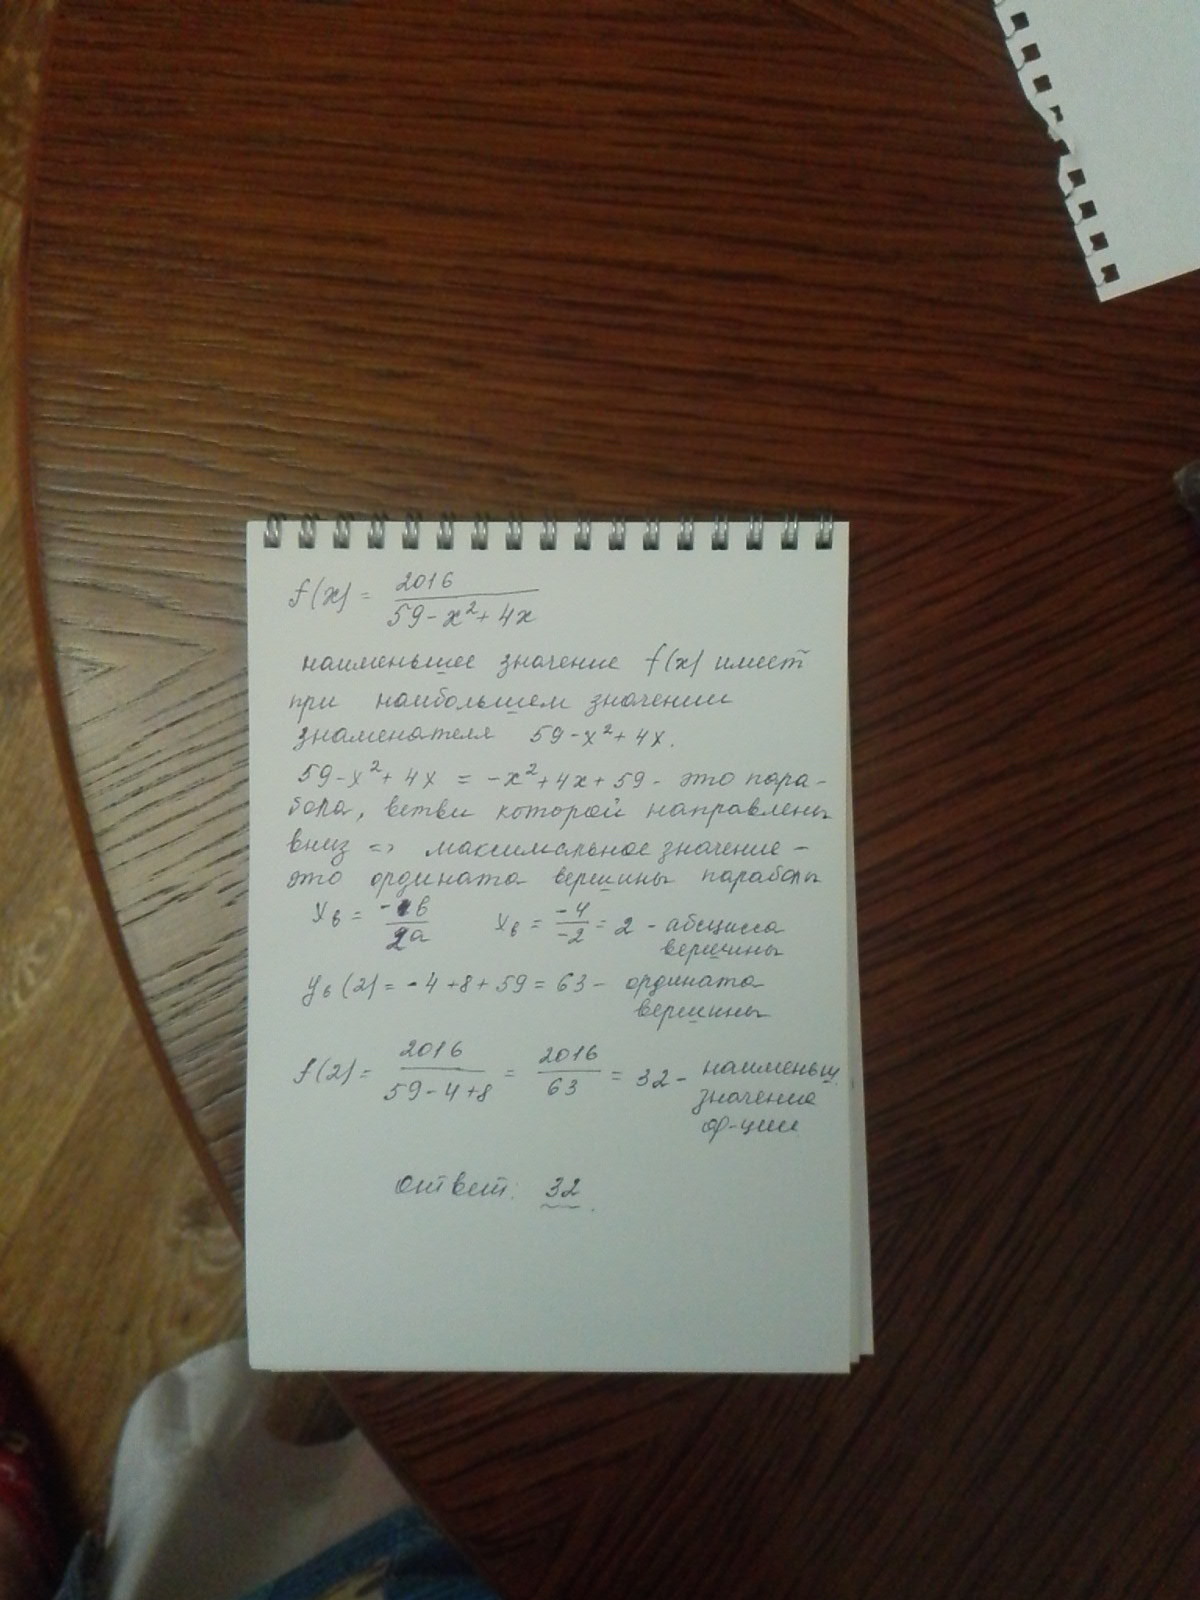 f(x) = 2016 / 59 - x² + 4x
наименьшее значение f(x) имеет
при наибольшем значении
знаменателя 59 - x² + 4x.
59 - x² + 4x = -x² + 4x + 59 - это пара-
бола, ветви которой направлены
вниз => максимальное значение -
это ордината вершины параболы
xв = -в / 2a xв = -4 / -2 = 2 - абсцисса
вершины
yв (2) = -4 + 8 + 59 = 63 - ордината
вершины
f(2) = 2016 / 59 - 4 + 8 = 2016 / 63 = 32 - наименьш.
значение
ф-ции
ответ: 32.